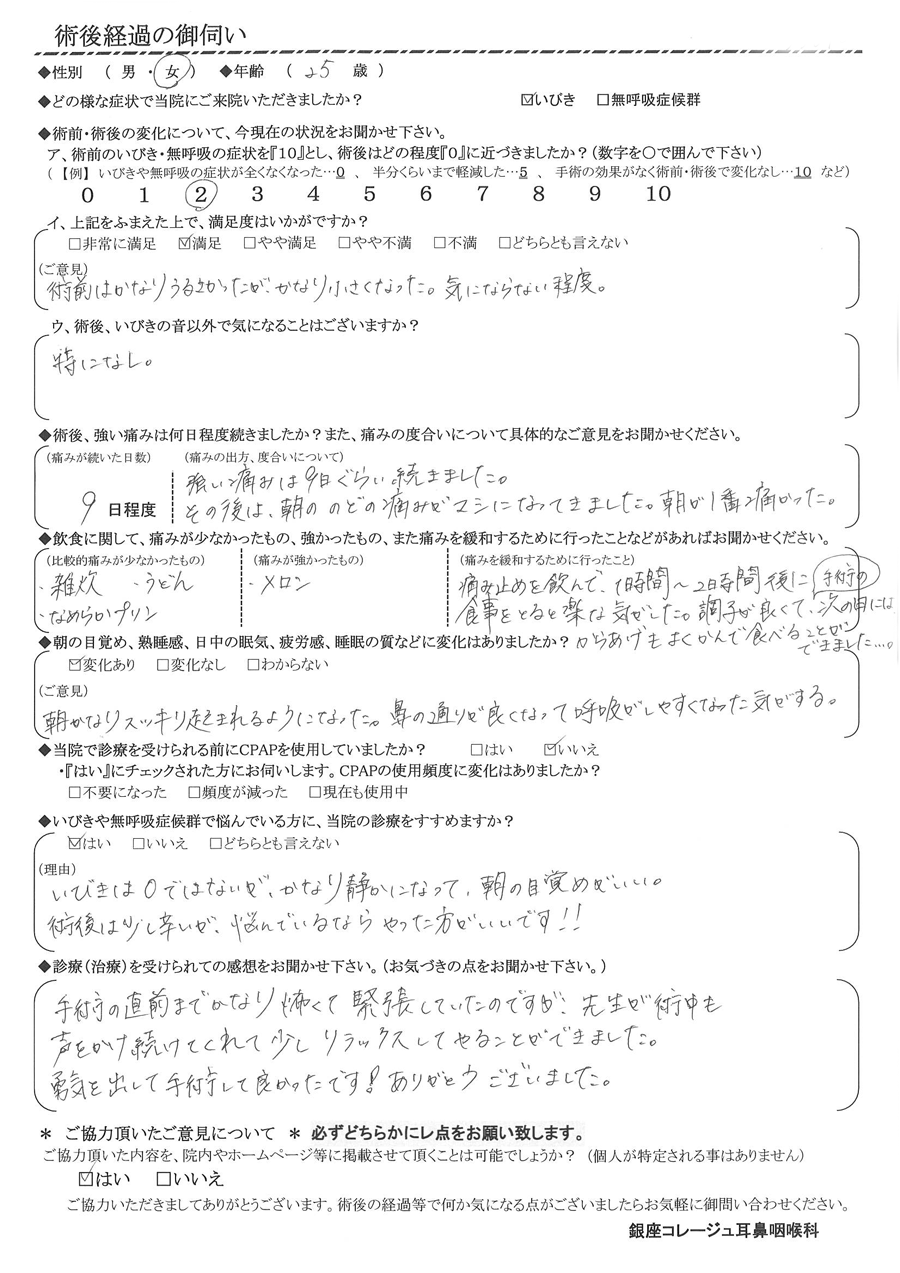 術後経過の御伺い
◆性別 （ 男 ・ 女 ） ◆年齢 （ 25 歳 ）
◆どの様な症状で当院にご来院いただきましたか？ ☑いびき □無呼吸症候群
◆術前・術後の変化について、今現在の状況をお聞かせ下さい。
ア、術前のいびき・無呼吸の症状を『10』とし、術後はどの程度『0』に近づきましたか？（数字を〇で囲んで下さい）
（【例】 いびきや無呼吸の症状が全くなくなった…0 、 半分くらいまで軽減した…5 、 手術の効果がなく術前・術後で変化なし…10 など）
0 1 2 3 4 5 6 7 8 9 10
イ、上記をふまえた上で、満足度はいかがですか？
□非常に満足 ☑満足 □やや満足 □やや不満 □不満 □どちらとも言えない
（ご意見）
術前はかなりうるさかったが、かなり小さくなった。気にならない程度。
ウ、術後、いびきの音以外で気になることはございますか？
特になし。
◆術後、強い痛みは何日程度続きましたか？また、痛みの度合いについて具体的なご意見をお聞かせください。
（痛みが続いた日数） （痛みの出方、度合いについて）
強い痛みは9日ぐらい続きました。
9 日程度 その後は、朝ののどの痛みがマシになってきました。朝が1番痛かった。
◆飲食に関して、痛みが少なかったもの、強かったもの、また痛みを緩和するために行ったことなどがあればお聞かせください。
（比較的痛みが少なかったもの） （痛みが強かったもの） （痛みを緩和するために行ったこと）
・雑炊 ・うどん ・メロン 痛み止めを飲んで、1時間～2時間後に 手術の
・なめらかプリン 食事をとると楽な気がした。調子が良くて、次の日には
◆朝の目覚め、熟睡感、日中の眠気、疲労感、睡眠の質などに変化はありましたか？ からあげもよくかんで食べることが
できました…。
☑変化あり □変化なし □わからない
（ご意見）
朝かなりスッキリ起きれるようになった。鼻の通りが良くなって呼吸がしやすくなった気がする。
◆当院で診療を受けられる前にCPAPを使用していましたか？ □はい ☑いいえ
・『はい』にチェックされた方にお伺いします。CPAPの使用頻度に変化はありましたか？
□不要になった □頻度が減った □現在も使用中
◆いびきや無呼吸症候群で悩んでいる方に、当院の診療をすすめますか？
☑はい □いいえ □どちらとも言えない
（理由）
いびきは0ではないが、かなり静かになって、朝の目覚めがいい。
術後は少し辛いが、悩んでいるならやった方がいいです!!
◆診療（治療）を受けられての感想をお聞かせ下さい。（お気づきの点をお聞かせ下さい。）
手術の直前までかなり怖くて緊張していたのですが、先生が術中も
声をかけ続けてくれて少しリラックスしてやることができました。
勇気を出して手術して良かったです！ありがとうございました。
＊ ご協力頂いたご意見について ＊ 必ずどちらかにレ点をお願い致します。
ご協力頂いた内容を、院内やホームページ等に掲載させて頂くことは可能でしょうか？ （個人が特定される事はありません）
☑はい □いいえ
ご協力いただきましてありがとうございます。術後の経過等で何か気になる点がございましたらお気軽に御問い合わせください。
銀座コレージュ耳鼻咽喉科